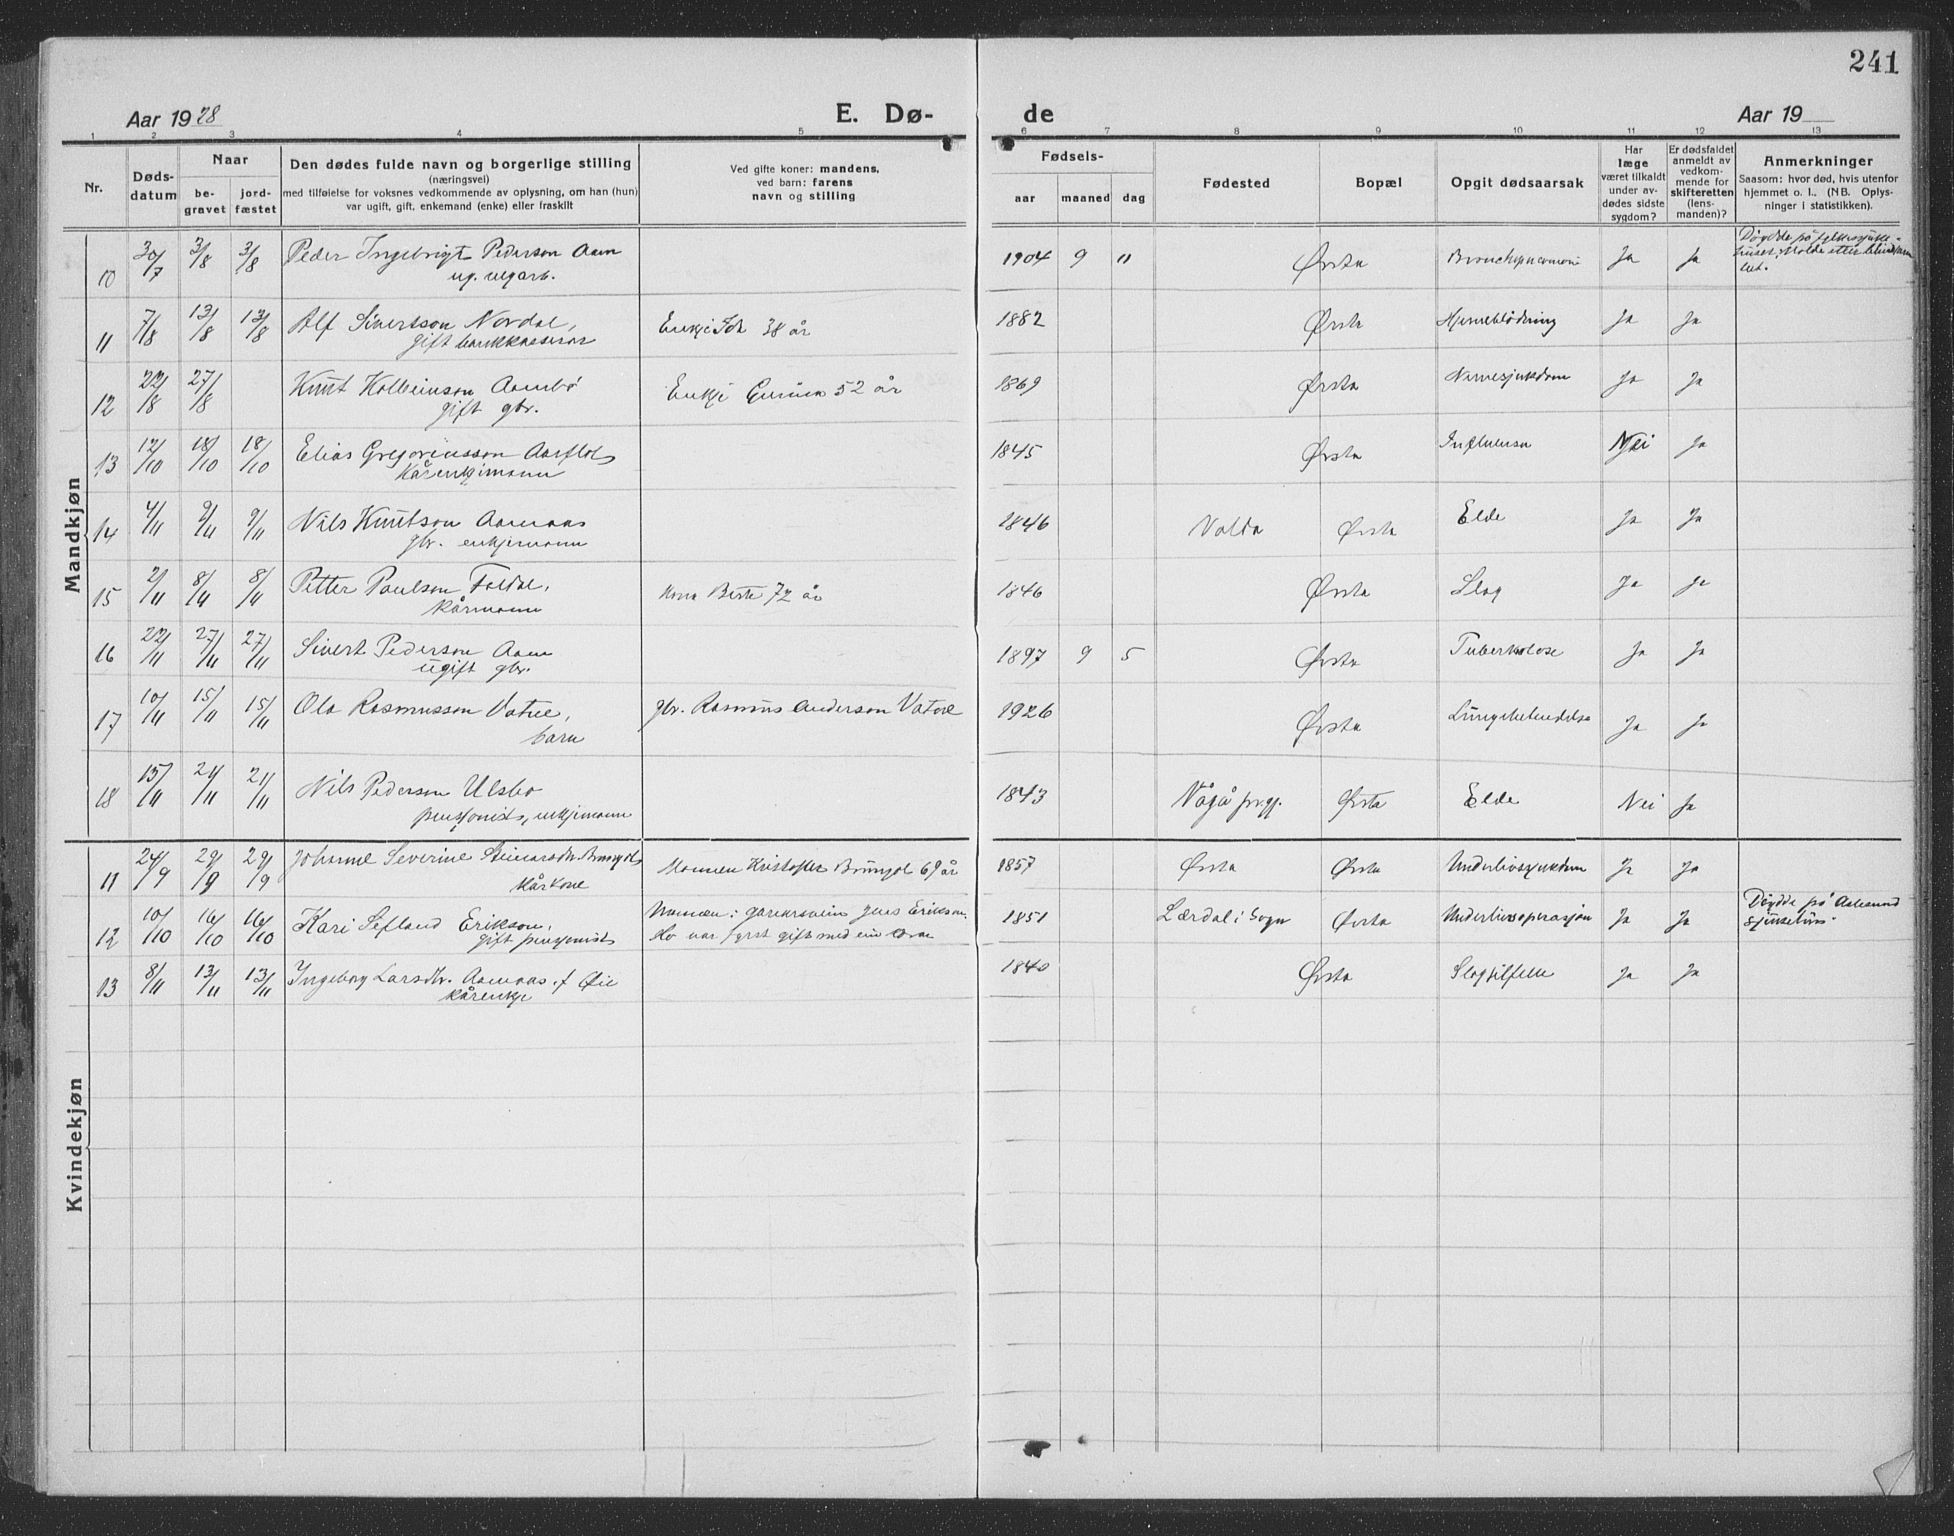 241
Aar 1928
E. Dø-
de
Aar 19
1 2 3 4 5 6 7 8 9 10 11 12 13
Nr.
Døds-
datum
Naar
be-
gravet
jord-
fæstet
Den dødes fulde navn og borgerlige stilling
(næringsvei)
med tilføielse for voksnes vedkommende av oplysning, om han (hun)
var ugift, gift, enkemand (enke) eller fraskilt
Ved gifte koner: mandens,
ved barn: farens
navn og stilling
Fødsels-
aar maaned dag
Fødested
Bopæl
Opgit dødsaarsak
Har
læge
været tilkaldt
under av-
dødes sidste
sygdom?
Er dødsfaldet
anmeldt av
vedkom-
mende for
skifteretten
(lens-
manden)?
Anmerkninger
Saasom: hvor død, hvis utenfor
hjemmet o. l., (NB. Oplys-
ninger i statistikken).
Mandkjøn
10 30/7 3/8 3/8 Peder Ingebrigt Pederson Aam 1904 9 11 Ørsta Ja Ja
ug. vegarb.
Døydde på fylkessjuke-
huset, Molde etter
11 7/8 13/8 13/8 Alf Sivertson Nordal, 38 år 1882 Ørsta Hjerneblødning Ja Ja
gift bankkasserar
12 22/8 27/8 Knut Kolbeinson Aambø Enkje 52 år 1869 Ørsta Nervesjukdom Ja Ja
gift gbr.
13 12/10 18/10 18/10 Elias Gregoriusson Aarflot 1845 Ørsta Influensa Nei Ja
Kårenkjimann
14 4/11 9/11 9/11 Nils Knutson Aamaas 1846 Volda Ørsta Elde Ja Ja
gbr. enkjemann
15 2/11 8/11 8/11 Petter Paulson Foldal, Kona Berte 72 år 1846 Ørsta Slag Ja Ja
Kårmann
16 22/11 27/11 27/11 Sivert Pederson Aam 1897 9 5 Ørsta Tuberkolose Ja Ja
ugift gbr.
17 10/11 15/11 15/11 Ola Rasmusson Vatne, gbr. Rasmus Anderson Vatne 1926 Ørsta Lungebetendelse Ja Ja
barn
18 15/11 21/11 21/11 Nils Pederson Ulsbo 1843 Vågå prgj. Ørsta Elde Nei Ja
pensjonist, enkjimann
Kvindekjøn
11 24/9 29/9 29/9 Johanne Severine Steinarsdtr. Brungot Mannen Kristofer Brungot 69 år 1857 Ørsta Ørsta Underlivssjukdom Ja Ja
Kårkone
12 10/10 16/10 16/10 Kari Sefland Erikson, Mannen: garvarsvein Jens Erikson. 1851 Lærdal i Sogn Ørsta Underlivsoperasjon Ja Ja
gift pensjonist Ho var fyrst gift med ein
Døydde på Aalesund
sjukehus.
13 8/11 13/11 13/11 Ingeborg Larsdtr. Aamaas f Øie 1840 Ørsta Slagtilfelle Ja Ja
kårenkje